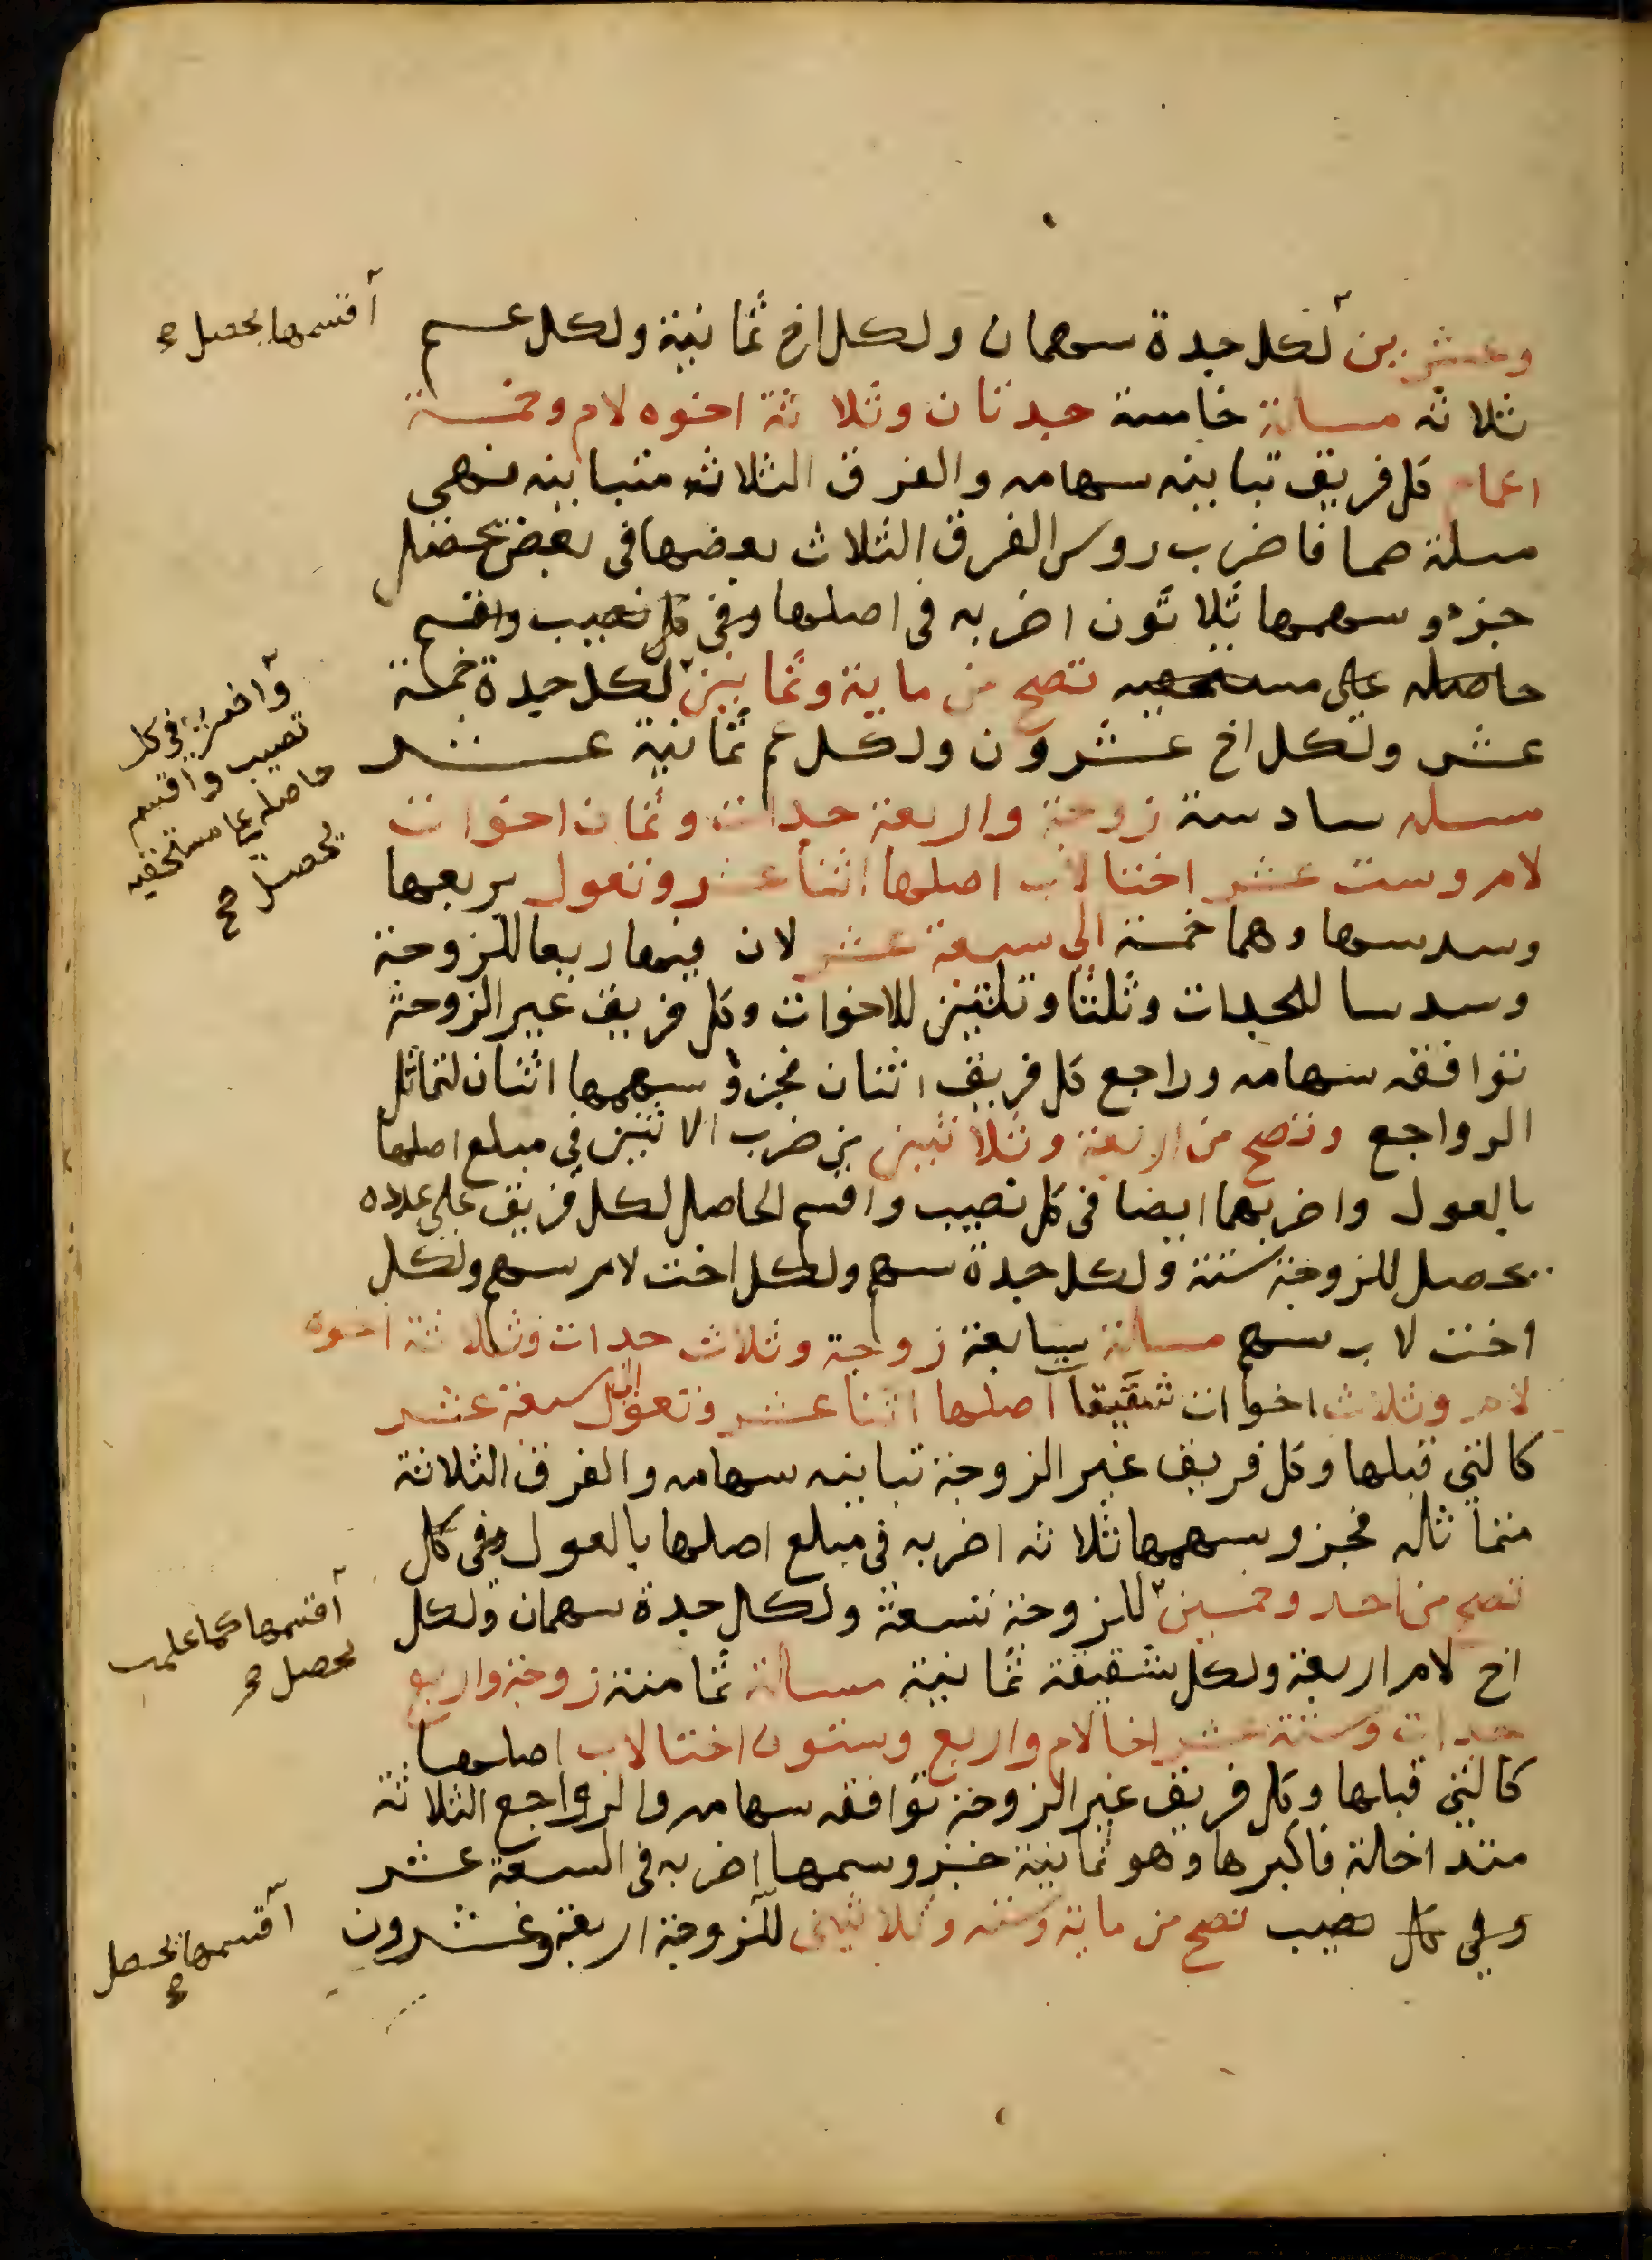 وعشرين لكل جدة سهمان ولكل اخ ثمانية ولكل عم
اقسمها يحصل صح
ثلاثه مسالة خامسة جدتان وثلاثة اخوه لام وخمسة
اعمام كل فريق تباينه سهامه والفرق الثلاثه متباينه فهي
مسلة صما فاضرب روس الفرق الثلاث بعضها في بعض يحصل
جزو سهمها ثلاثون اضربه في اصلها وفي كل نصيب واقسم
حاصله على مستحقيه تصح من ماية وثمانين لكل جدة خمسة
واضربه في كل
نصيب واقسم
حاصله على مستحقيه
يحصل صح
عشر ولكل اخ عشرون ولكل عم ثمانية عشر
مسله سادسة زوجة واربعة جدات وثمان اخوات
لام وست عشر اختا لاب اصلها اثنا عشر وتعول بربعها
وسدسها وهما خمسة الى سبعة عشر لان فيها ربعا للزوجة
وسدسا للجدات وثلثا وثلثين للاخوات وكل فريق غير الزوجة
توافقه سهامه وراجع كل فريق اثنان فجزؤ سهمها اثنان لتماثل
الرواجع وتصح من اربعة وثلاثين من ضرب الاثنين في مبلع اصلها
بالعول واضربهما ايضا في كل نصيب واقسم الحاصل لكل فريق على عدده
يحصل للزوجة ستة ولكل جدة سهم ولكل اخت لام سهم ولكل
اخت لاب سهم مسالة سابعة زوجة وثلاث جدات وثلاثة اخوة
لام وثلاث اخوات شقيقا اصلها اثنا عشر وتعول الى سبعة عشر
كالتي قبلها وكل فريق غير الزوجة تباينه سهامه والفرق الثلاثة
متماثله فجزو سهمها ثلاثه اضربه في مبلع اصلها بالعول وفي كل
تصح من احد وخمسين للزوجة تسعة ولكل جدة سهمان ولكل
اقسمها كما علمت
يحصل صح
اخ لام اربعة ولكل شقيقة ثمانية مسالة ثامنة زوجة واربع
جدات وستة عشر اخا لام واربع وستون اختا لاب اصلها
كالتي قبلها وكل فريق غير الزوجة توافقه سهامه والرواجع الثلاثة
متداخلة فاكبرها وهو ثمانية جزو سهمها اضربه في السبعة عشر
وفي كل نصيب تصح من ماية وستة وثلاثين للزوجة اربعة وعشرون
اقسمها يحصل
صح